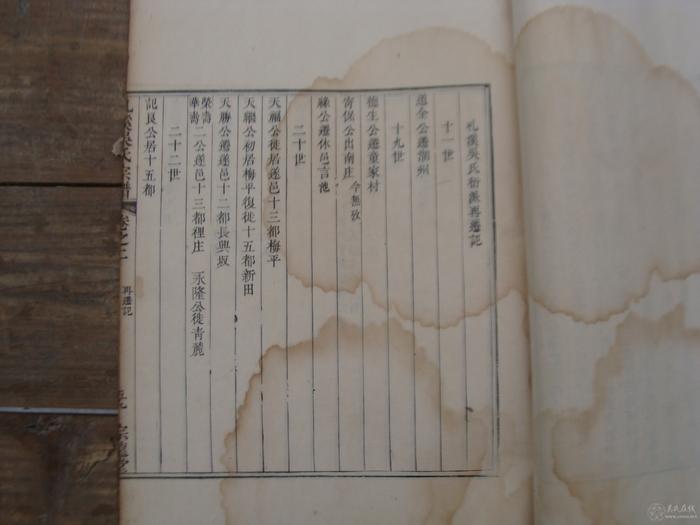 札溪吳氏衍派再遷記
十一世
道全公遷潮州
十九世
德生公遷童家村
寄保公出南庄 今無攷
祿公遷休邑言池
二十世
天福公徙居遂邑十三都梅平
天福公初居梅平復徙十五都新田
天勝公遷遂邑十二都長興坂
榮壽
華壽
二公遂邑十三都裡庄 永隆公徙青麓
二十二世
記良公居十五都
溪吳氏宗譜
卷之二
再遷記